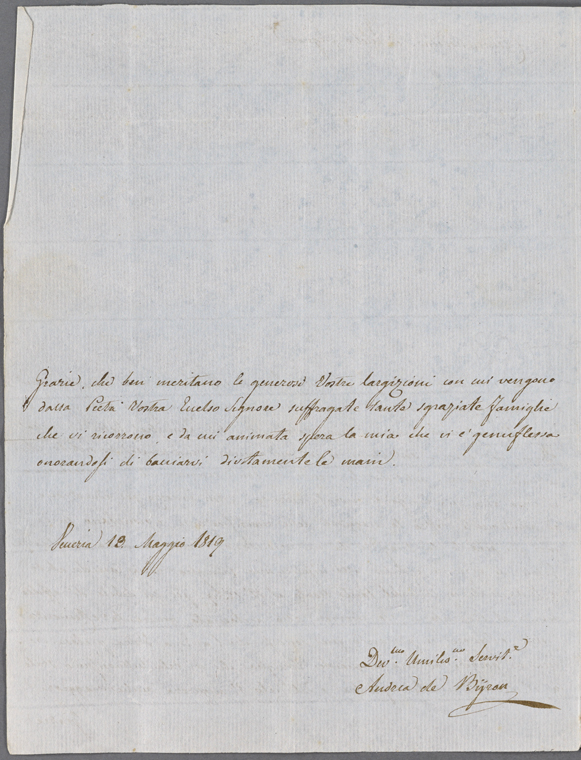 Grazie, che ben meritano le generose Vostre largizioni con cui vengono
dalla Pietà Vostra Eccelso Signore suffragate tante sgraziate famiglie
che vi ricorrono, e da cui animata spera la mia che vi è genuflessa
onorandosi di bacciarvi divotamente le mani.
Venezia 12 Maggio 1819
Dev.mo Umilis.mo Servit.e
Andrea de Bÿron